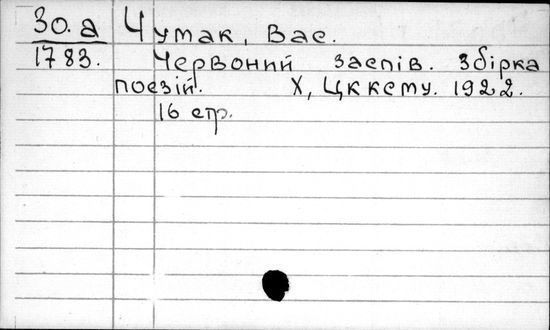 30.а Чумак, Вас.
1783. Червоний заспів. Збірка
поезій. Х, Цкксму. 1922.
16 стр.